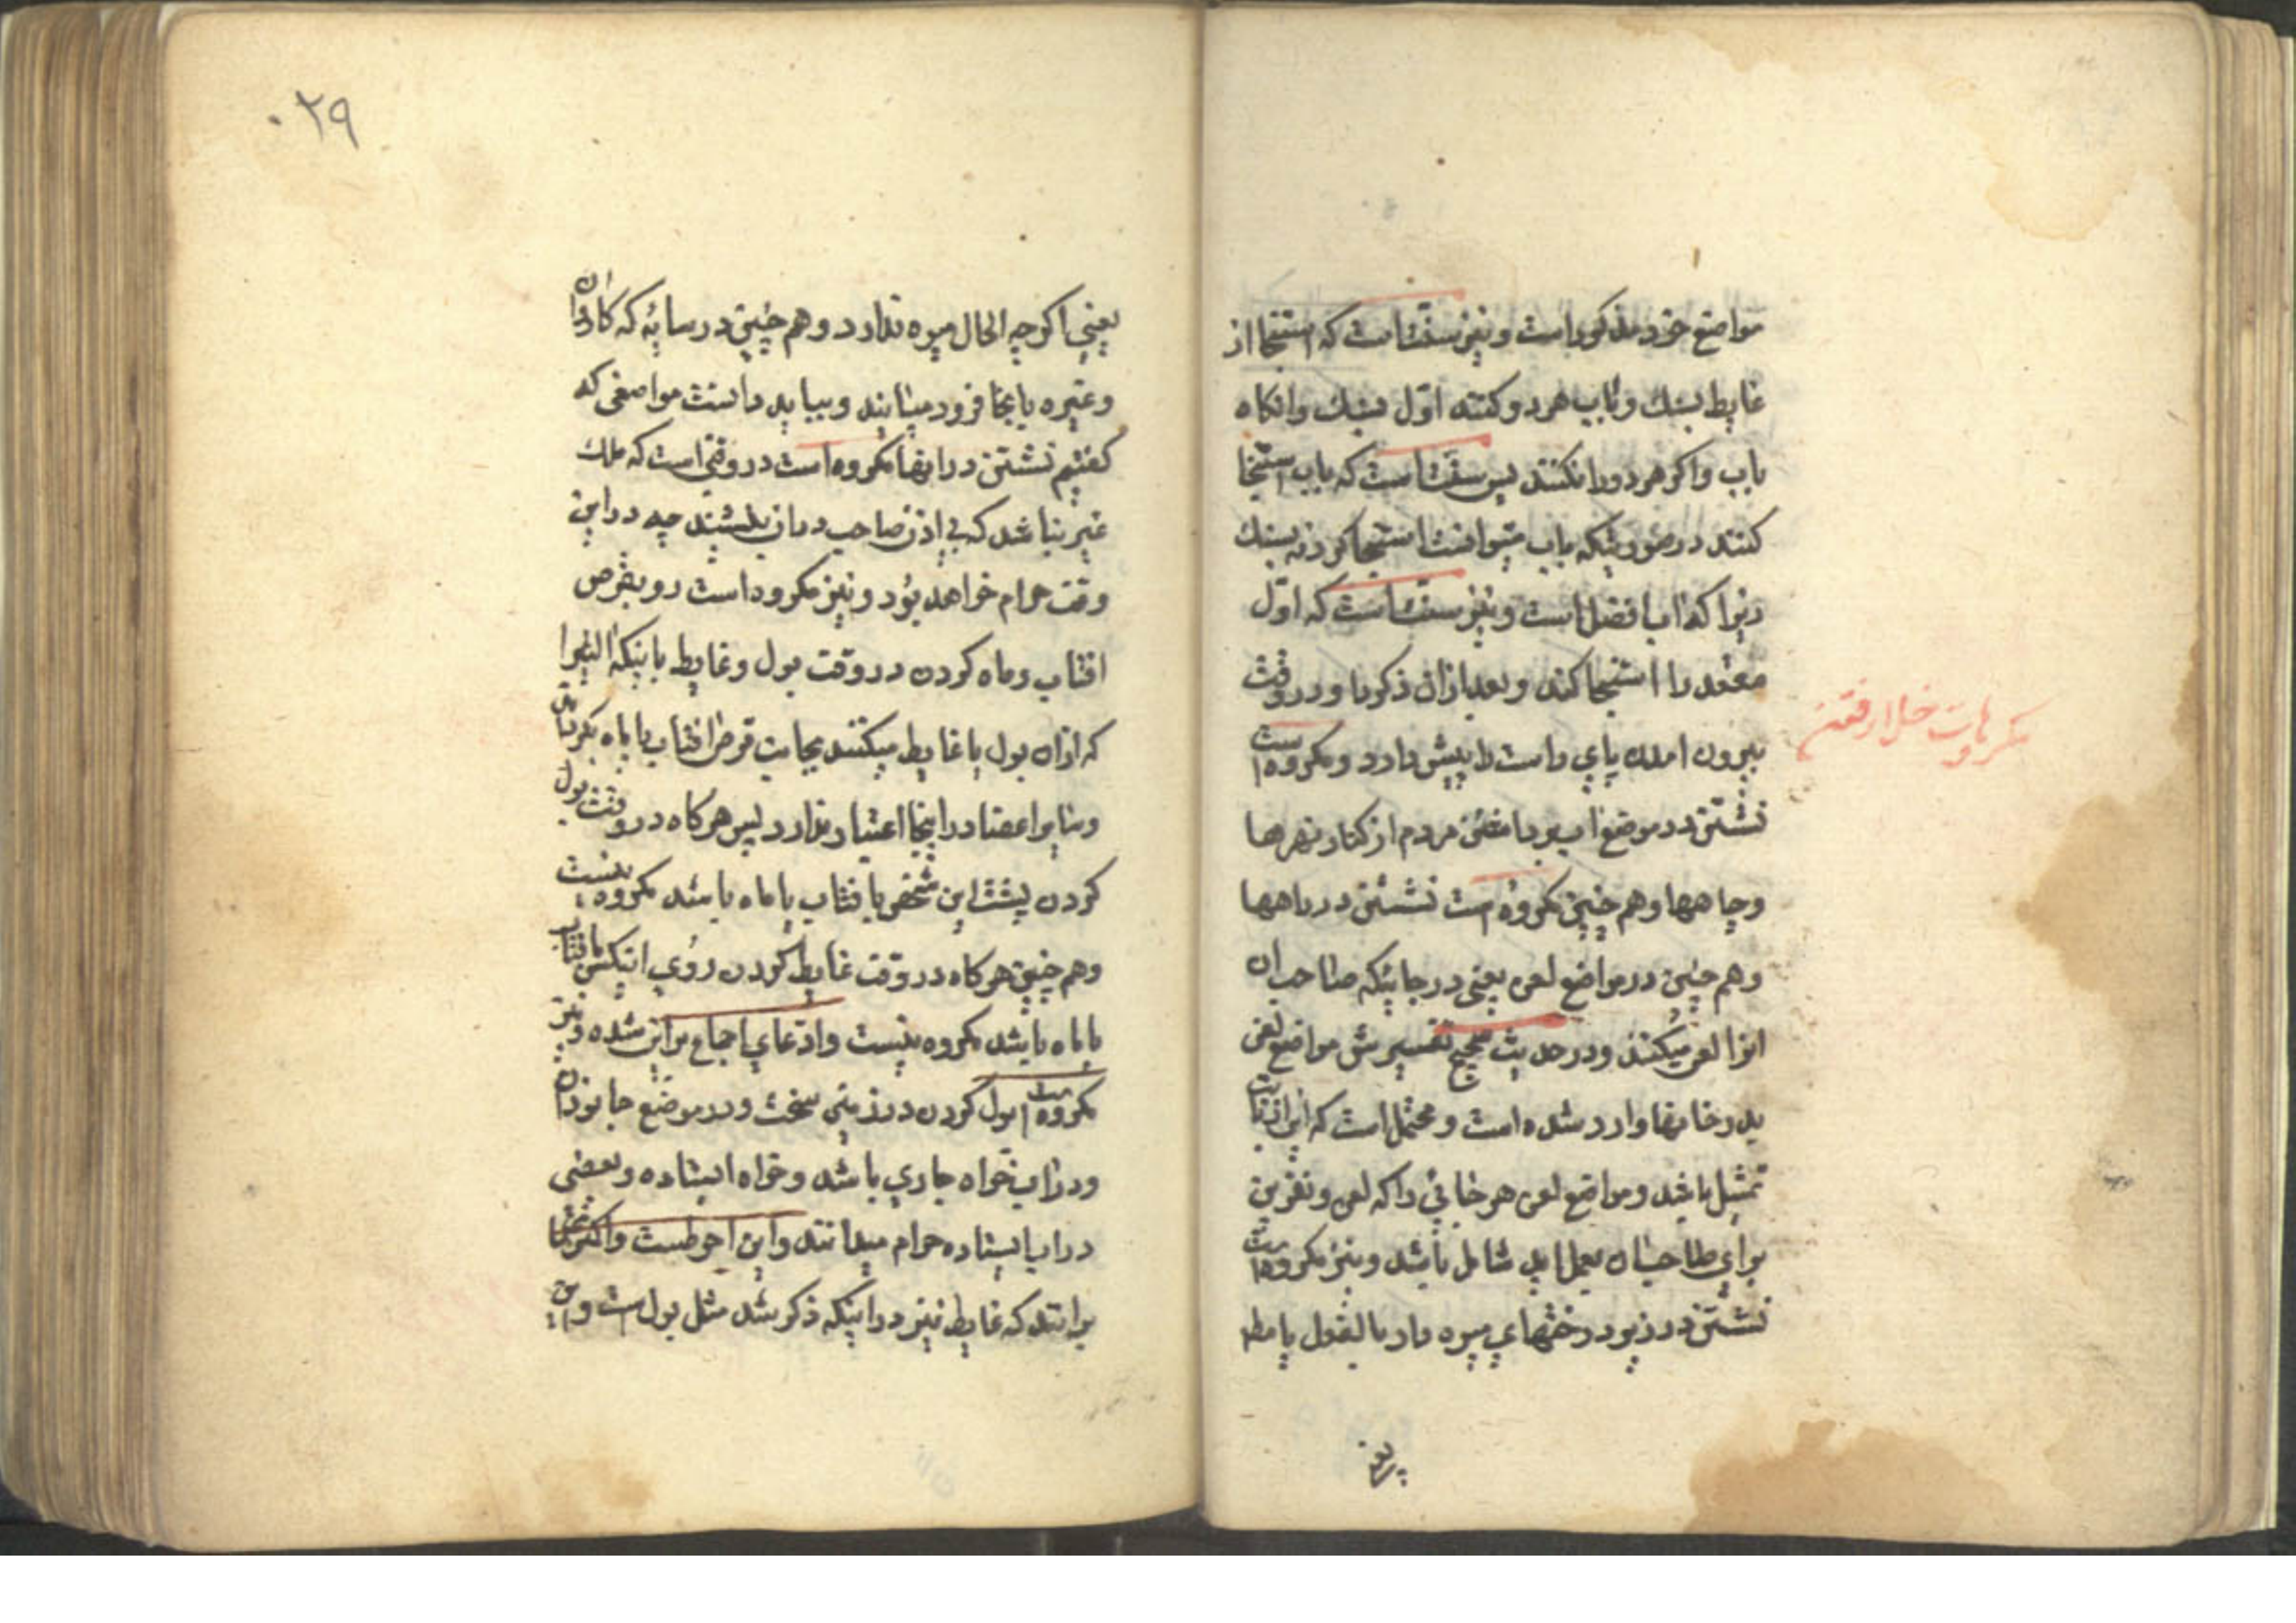 مواضع خود مذکور است و نیز سنّت است که استنجا از
غایط بسنك و باب هر دو کنند اوّل بسنك وانکاه
باب واکر هر دو را نکنند پس سنّت است که باب استنجا
کنند در صورتیکه باب میتوانند استنجا کرد نه بسنك
زیرا که اب افضل است و نیز سنّت است که اوّل
مقعد را استنجا کند و بعد ازان ذکر را و در وقت
بیرون امدن پای راست را پیش دارد و مکروه است
مکروهات خلا رفتن
نشستن در موضع اب برداشتن مردم از کنار نهرها
وچاهها وهم چنین مکروه است نشستن در راهها
وهم چنین در مواضع لعن یعنی در جائیکه صاحب ان
انرا لعن میکنند ودر حدیث صحیح تفسیرش مواضع لعن
بدر خانها وارد شده است و محتمل است که این از باب
تمثیل باشد ومواضع لعن هر جائی را که لعن و نفرین
برای صاحب ان بعمل اید شامل باشد ونیز مکروه است
نشستن در زیر درختهای میوه دار بالفعل یا مطلقا
یعنی
۰۲۹
یعنی اکرچه الحال میوه ندارد وهم چنین در سایهٔ که کاروان
وغیره بانجا فرود میایند وبباید دانست مواضعی که
کفتیم نشستن درانها مکروه است در وقتی است که ملك
غیر نباشد که بی اذن صاحب دران بنشیند چه دراین
وقت حرام خواهد بود ونیز مکروه است رو بقرص
افتاب وماه کردن در وقت بول وغایط باینکه التی را
که ازان بول یا غایط میکنند بجانب قرص افتاب یا ماه بکرداند
وسایر اعضا دراینجا اعتبار ندارد پس هرکاه در وقت بول
کردن پشت این شخص بافتاب یا ماه باشد مکروه نیست
وهم چنین هرکاه در وقت غایط کردن روی انیکس بافتاب
یا ماه باشد مکروه نیست وادّعای اجماع براین شده ونیز
مکروه است بول کردن در زمین سخت ودر موضع جانوران
ودر اب خواه جاری باشد وخواه ایستاده وبعضی
در اب ایستاده حرام میدانند واین احوط است واکثر علما
برانند که غایط نیز در اینکه ذکر شد مثل بول است و این